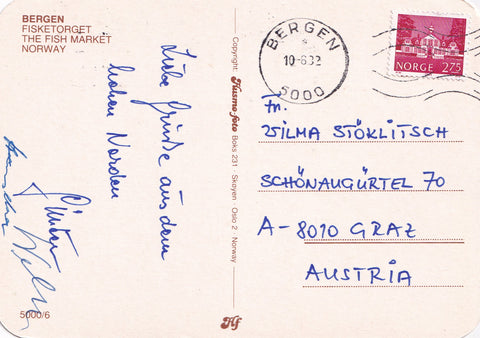 BERGEN
FISKETORGET
THE FISH MARKET
NORWAY
Liebe Grüße aus dem
hohen Norden
Günter
5000/6
Copyright Husmo-foto Boks 231 - Skøyen - Oslo 2 - Norway
Hf
BERGEN
10-6.82
5000
NORGE 275
Fr.
WILMA STÖKLITSCH
SCHÖNAUGÜRTEL 70
A-8010 GRAZ
AUSTRIA